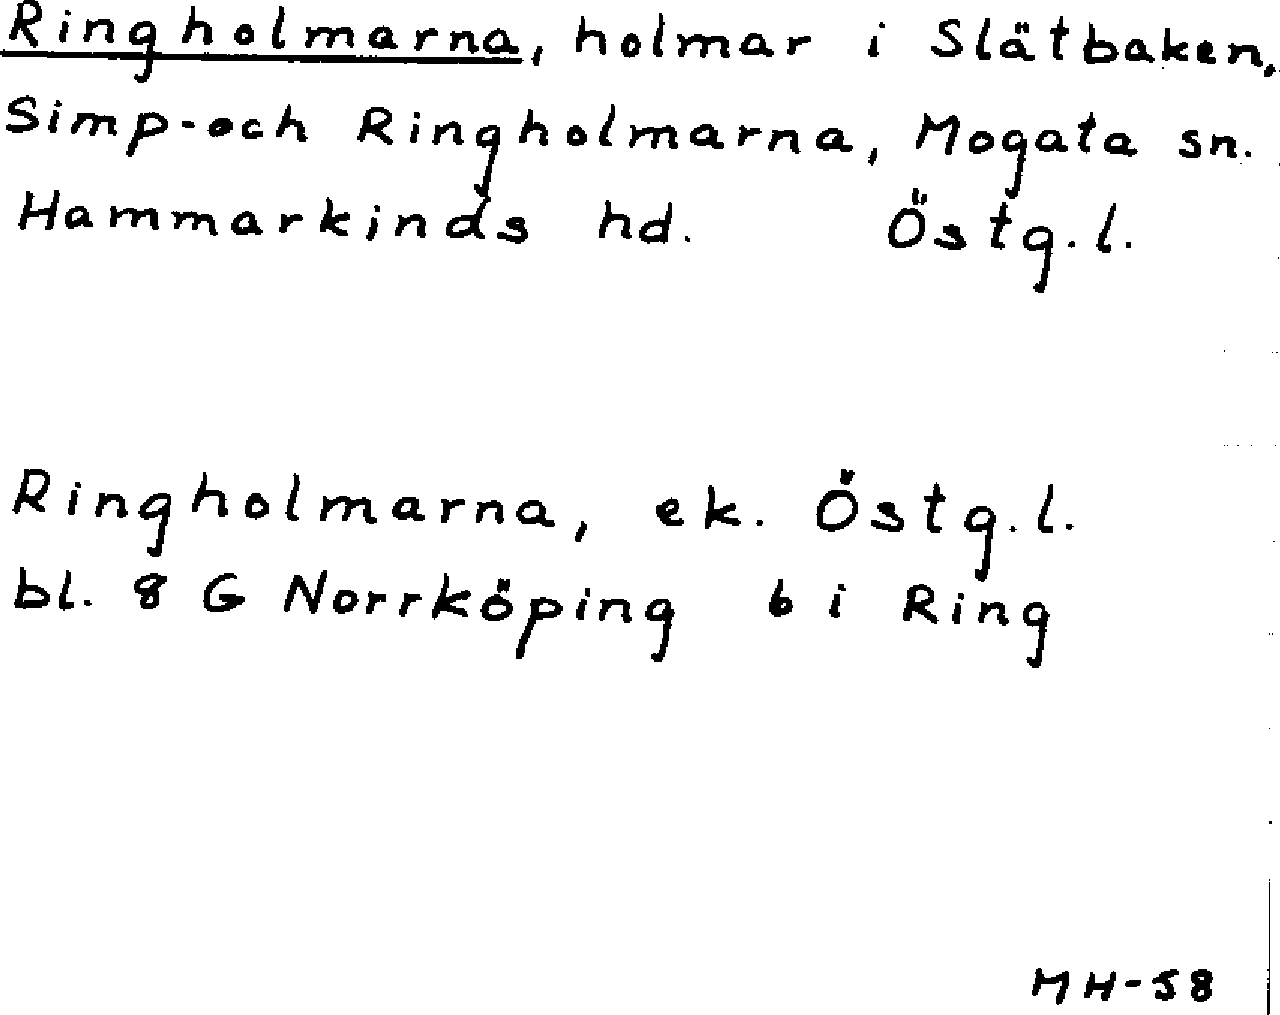 Ringholmarna, holmar i Slätbaken,
Simp-och Ringholmarna, Mogata sn.
Hammarkinds hd. Östg.l.
Ringholmarna, ek. Östg.l.
bl. 8 G Norrköping 6 i Ring
MH-58